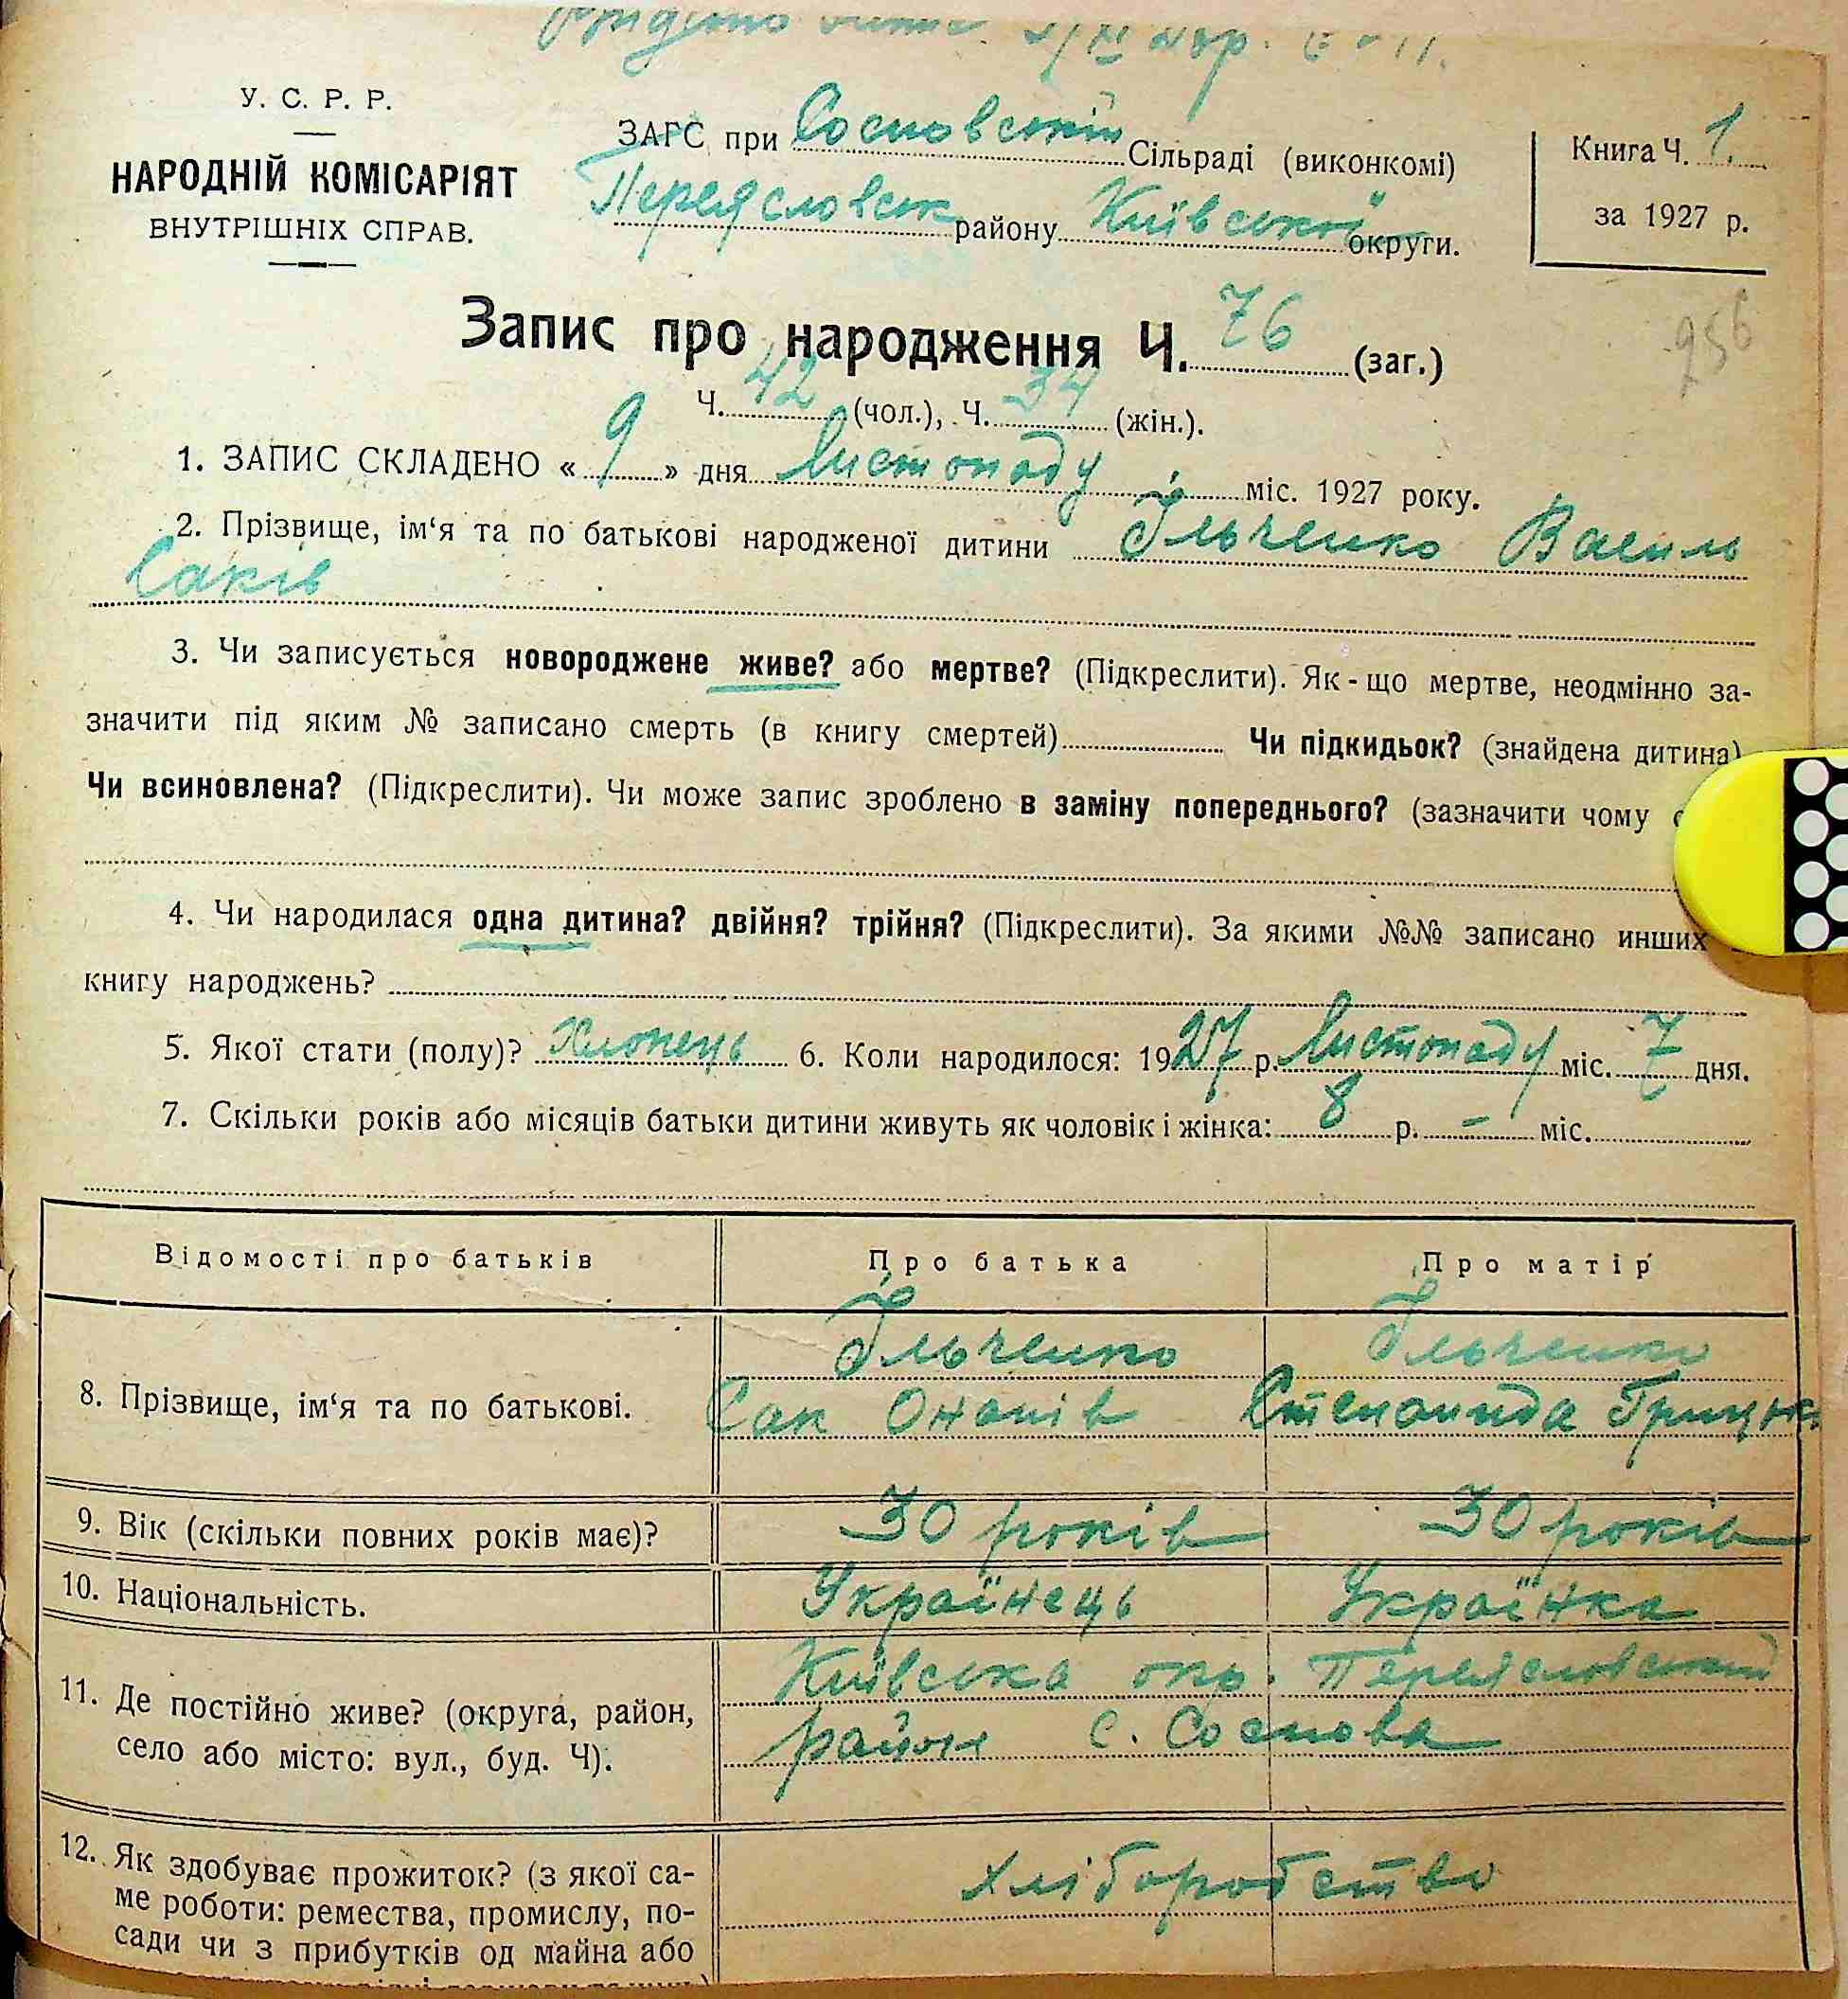 У. С. Р. Р.
НАРОДНІЙ КОМІСАРІЯТ
ВНУТРІШНІХ СПРАВ.
ЗАГС при Сосновській Сільраді (виконкомі)
Переясловськ району Київської округи.
Книга Ч. 1.
за 1927 р.
Запис про народження Ч. 76 (заг.)
956
Ч. 42 (чол.), Ч. 34 (жін.).
1. ЗАПИС СКЛАДЕНО « 9 » дня Листопаду міс. 1927 року.
2. Прізвище, ім‘я та по батькові народженої дитини Ільченко Василь
Саків
3. Чи записується новороджене живе? або мертве? (Підкреслити). Як-що мертве, неодмінно за-
значити під яким № записано смерть (в книгу смертей) Чи підкидьок? (знайдена дитина)
Чи всиновлена? (Підкреслити). Чи може запис зроблено в заміну попереднього? (зазначити чому
4. Чи народилася одна дитина? двійня? трійня? (Підкреслити). За якими №№ записано инших
книгу народжень?
5. Якої стати (полу)? Хлопець 6. Коли народилося: 1927 р. Листопаду міс. 7 дня.
7. Скільки років або місяців батьки дитини живуть як чоловік і жінка: 8 р. - міс.
Відомості про батьків Про батька Про матір
8. Прізвище, ім‘я та по батькові. Ільченко Ільченко
Сак Онапів Степанида
9. Вік (скільки повних років має)? 30 років 30 років
10. Національність. Українець Українка
11. Де постійно живе? (округа, район, Київська окр. Переясловський
село або місто: вул., буд. Ч). район с. Соснова
12. Як здобуває прожиток? (з якої са- хліборобство
ме роботи: ремества, промислу, по-
сади чи з прибутків од майна або